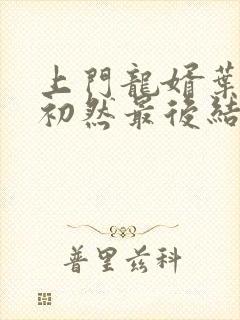 上門龍婿葉
初然最後結
普里兹科